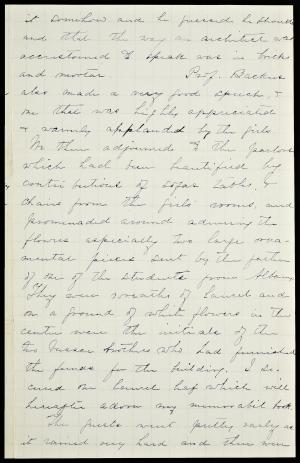 it somehow and he guessed he should
and that the way an architect was
accustomed to speak was in brick
and mortar. Prof. Backus
also made a very good speech, &
one that was highly appreciated
& warmly applauded by the girls.
We then adjourned to the parlors
which had been beautified by
contributions of sofas, tables, &
chairs from the girls' rooms, and
promenaded around admiring the
flowers especially two large orna-
mental pieces sent by the father
of one of the students from Albany.
They were wreaths of laurel and
on a ground of white flowers in the
centre were the initials of the
two Vassar brothers who had furnished
the funds for the building. I se-
cured one laurel leaf which will
hereafter adorn my memorabil book.
The guests went pretty early as
it rained very hard and there were